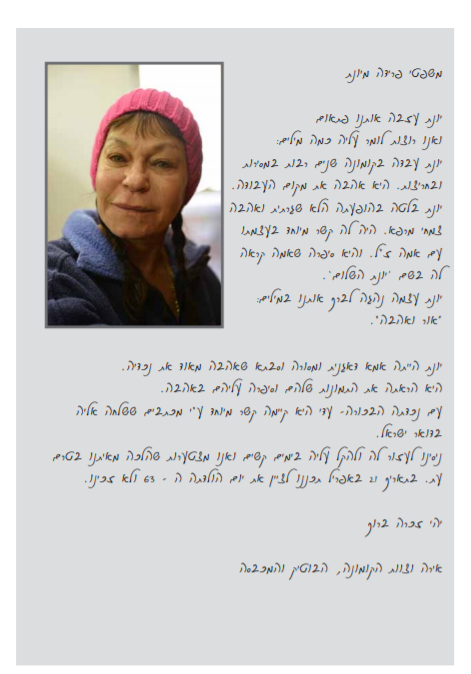 משפטי פרידה מיונת
יונת עזבה אותנו פתאום
ואנו רוצות לומר עליה כמה מילים:
יונת עבדה בקומונה שנים רבות במסירות
ובחריצות. היא אהבה את מקום העבודה.
יונת בלטה בהופעתה הלא שגרתית ואהבה
צמחי מרפא. היה לה קשר מיוחד בעצמתו
עם אמה ז"ל. והיא סיפרה שאמה קראה
לה בשם "יונת השלום".
יונת עצמה נהגה לברך אותנו במילים:
"אור ואהבה".
יונת הייתה אמא דאגנית ומסורה וסבתא שאהבה מאוד את נכדיה.
היא הראתה את התמונות שלהם וסיפרה עליהם באהבה.
עם נכדתה הבכורה- עדי היא קיימה קשר מיוחד ע"י מכתבים ששלחה אליה
בדואר ישראל.
ניסינו לעזור לה ולהקל עליה בימים קשים ואנו מצטערות שהלכה מאיתנו בטרם
עת. בתאריך 21 באפריל תכננו לציין את יום הולדתה ה - 63 ולא זכינו.
יהי זכרה ברוך
אירה וצוות הקומונה, הבוטיק והמכבסה